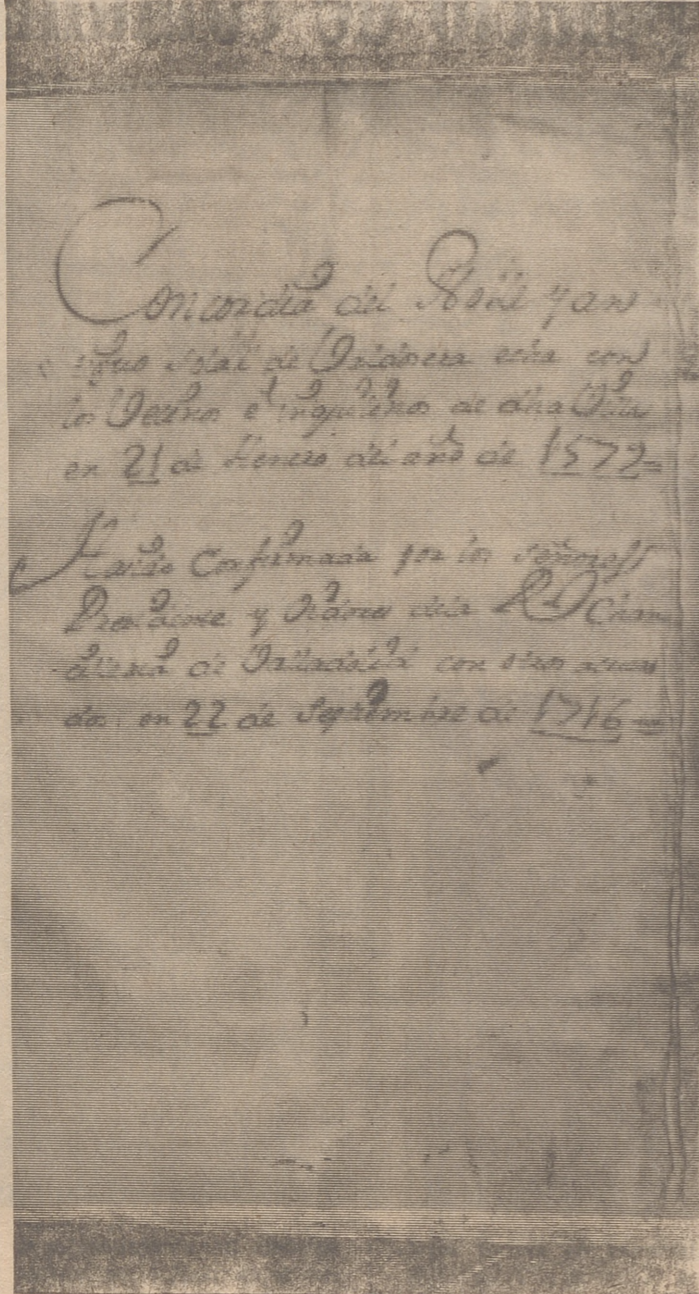 Concordia del Noble y an
tiguo solar de Valdosera esta con
los Vecinos e inquilinos de dha Villa
en 21 de Henero del año de 1572=
Confirmada por los señores
Presidente y Oidores dela Rl Chan
cilleria de Valladolid con otros acuer
dos en 22 de Septiembre de 1716=